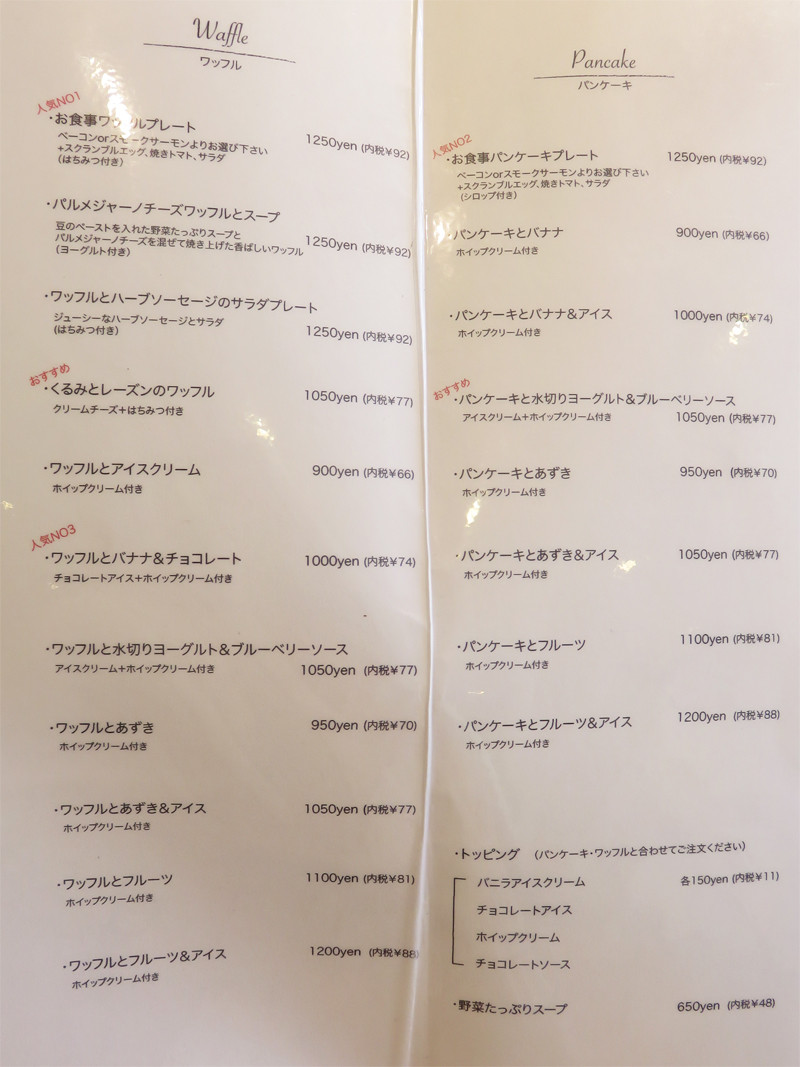 Waffle
ワッフル
人気NO1
・お食事ワッフルプレート
ベーコンorスモークサーモンよりお選び下さい
+スクランブルエッグ、焼きトマト、サラダ
(はちみつ付き)
1250yen (内税¥92)
・パルメジャーノチーズワッフルとスープ
豆のペーストを入れた野菜たっぷりスープと
パルメジャーノチーズを混ぜて焼き上げた香ばしいワッフル
(ヨーグルト付き)
1250yen (内税¥92)
・ワッフルとハーブソーセージのサラダプレート
ジューシーなハーブソーセージとサラダ
(はちみつ付き)
1250yen (内税¥92)
おすすめ
・くるみとレーズンのワッフル 1050yen (内税¥77)
クリームチーズ+はちみつ付き
・ワッフルとアイスクリーム 900yen (内税¥66)
ホイップクリーム付き
人気NO3
・ワッフルとバナナ&チョコレート 1000yen (内税¥74)
チョコレートアイス+ホイップクリーム付き
・ワッフルと水切りヨーグルト&ブルーベリーソース
アイスクリーム+ホイップクリーム付き 1050yen (内税¥77)
・ワッフルとあずき 950yen (内税¥70)
ホイップクリーム付き
・ワッフルとあずき&アイス 1050yen (内税¥77)
ホイップクリーム付き
・ワッフルとフルーツ 1100yen (内税¥81)
ホイップクリーム付き
・ワッフルとフルーツ&アイス 1200yen (内税¥88)
ホイップクリーム付き
Pancake
パンケーキ
人気NO2
・お食事パンケーキプレート 1250yen (内税¥92)
ベーコンorスモークサーモンよりお選び下さい
+スクランブルエッグ、焼きトマト、サラダ
(シロップ付き)
・パンケーキとバナナ 900yen (内税¥66)
ホイップクリーム付き
・パンケーキとバナナ&アイス 1000yen (内税¥74)
ホイップクリーム付き
おすすめ
・パンケーキと水切りヨーグルト&ブルーベリーソース
アイスクリーム+ホイップクリーム付き 1050yen (内税¥77)
・パンケーキとあずき 950yen (内税¥70)
ホイップクリーム付き
・パンケーキとあずき&アイス 1050yen (内税¥77)
ホイップクリーム付き
・パンケーキとフルーツ 1100yen (内税¥81)
ホイップクリーム付き
・パンケーキとフルーツ&アイス 1200yen (内税¥88)
ホイップクリーム付き
・トッピング (パンケーキ・ワッフルと合わせてご注文ください)
バニラアイスクリーム 各150yen (内税¥11)
チョコレートアイス
ホイップクリーム
チョコレートソース
・野菜たっぷりスープ 650yen (内税¥48)